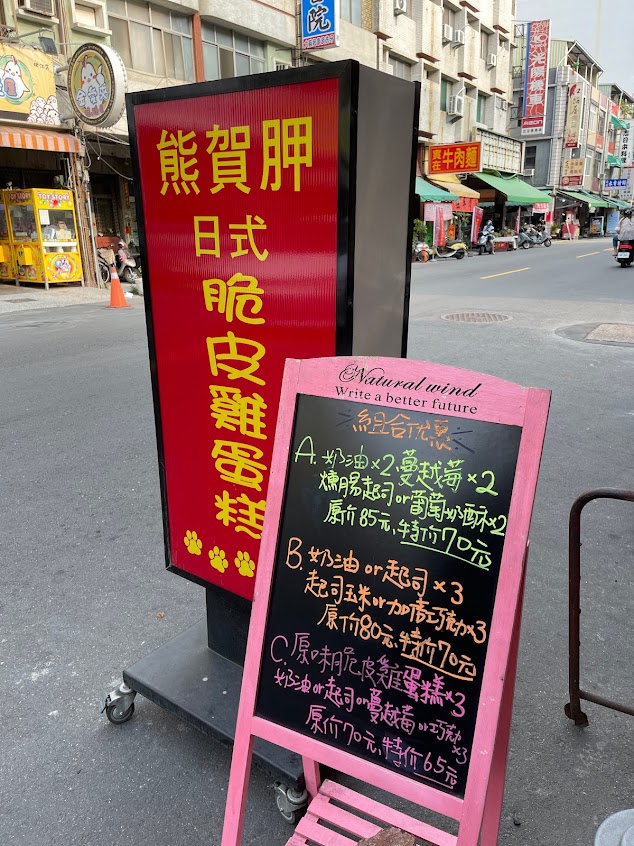 熊賀胛
日式
脆皮雞蛋糕
Natural wind
Write a better future
組合优惠
A. 奶油×2、蔓越莓×2
燻腸起司or葡萄奶酥×2
原价85元、特价70元
B. 奶油 or 起司×3
起司玉米or加倍巧克力×3
原价80元、特价70元
C. 原味脆皮雞蛋糕×3
奶油or起司or蔓越莓or巧克力×3
原价70元、特价65元
牛肉麵
光陽機車
TOY STORY
院